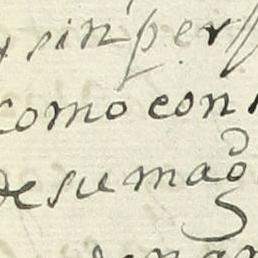 sin per
como con
de su mag^d